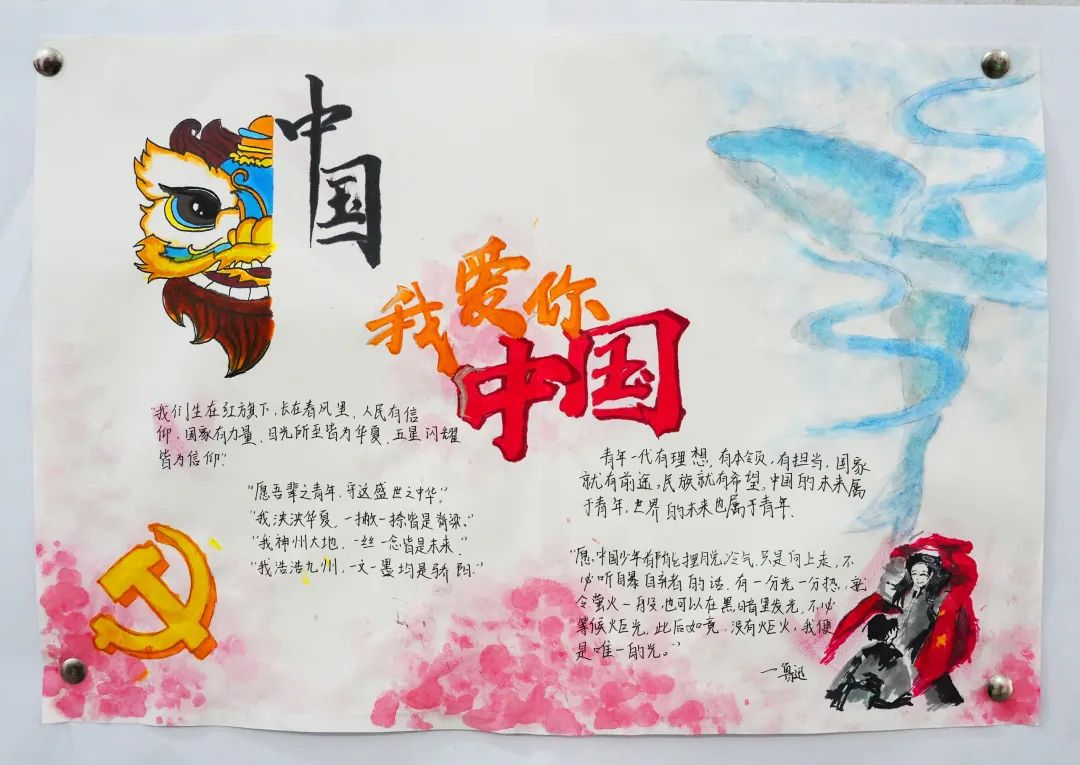 中国
我爱你
中国
"我们生在红旗下，长在春风里，人民有信
仰，国家有力量，目光所至皆为华夏，五星闪耀
皆为信仰."
"愿吾辈之青年，守这盛世之中华."
"我泱泱华夏，一撇一捺皆是脊梁."
"我神州大地，一丝一念皆是未来."
"我浩浩九州，一文一墨均是骄阳."
青年一代有理想，有本领，有担当，国家
就有前途，民族就有希望，中国的未来属
于青年，世界的未来也属于青年.
"愿中国少年都摆脱冷气，只是向上走，不
必听自暴自弃者的话，有一分光一分热，
令萤火一般，也可以在黑暗里发光，不必
等候炬光，此后如竟，没有炬火，我便
是唯一的光."
一鲁迅